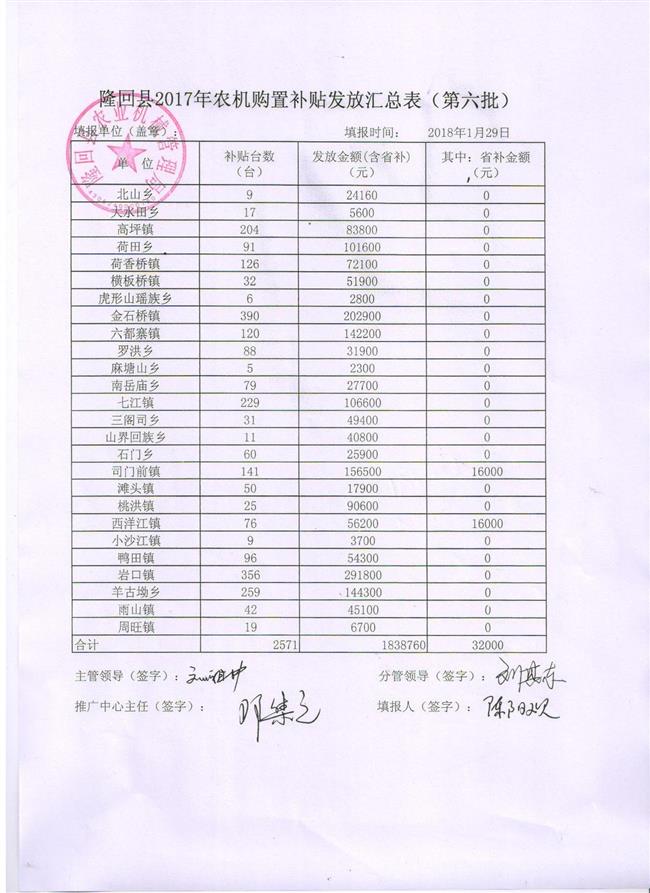 隆回县2017年农机购置补贴发放汇总表（第六批）
填报单位（盖章）： 填报时间： 2018年1月29日
隆回县农业机械管理局
单 位 补贴台数（台） 发放金额(含省补)（元） 其中：省补金额（元）
北山乡 9 24160 0
大水田乡 17 5600 0
高坪镇 204 83800 0
荷田乡 91 101600 0
荷香桥镇 126 72100 0
横板桥镇 32 51900 0
虎形山瑶族乡 6 2800 0
金石桥镇 390 202900 0
六都寨镇 120 142200 0
罗洪乡 88 31900 0
麻塘山乡 5 2300 0
南岳庙乡 79 27700 0
七江镇 229 106600 0
三阁司乡 31 49400 0
山界回族乡 11 40800 0
石门乡 60 25900 0
司门前镇 141 156500 16000
滩头镇 50 17900 0
桃洪镇 25 90600 0
西洋江镇 76 56200 16000
小沙江镇 9 3700 0
鸭田镇 96 54300 0
岩口镇 356 291800 0
羊古坳乡 259 144300 0
雨山镇 42 45100 0
周旺镇 19 6700 0
合计 2571 1838760 32000
主管领导（签字）： 分管领导（签字）：
推广中心主任（签字）： 填报人（签字）：